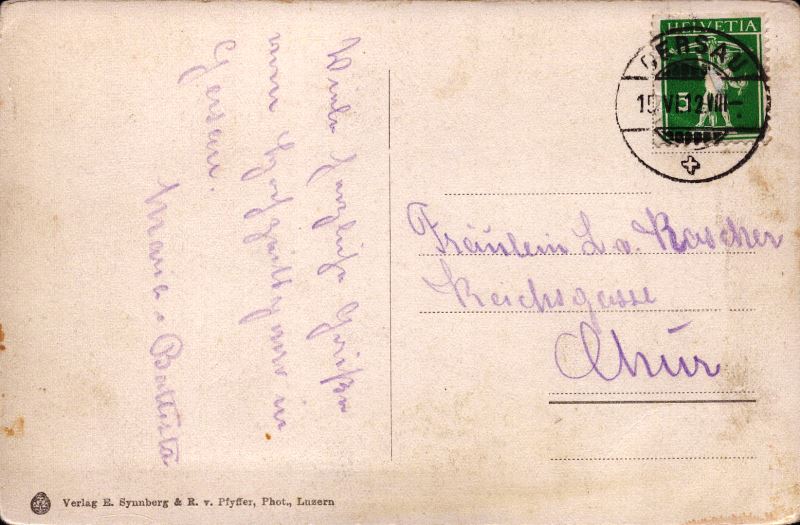 Viele herzliche Grüße
vom Hochzeitspaar in
Gersau.
Maria & Battista
HELVETIA
5
GERSAU
15.VI.12.VIII-
Fräulein L. a. Rascher
Reichsgasse
Chur
Verlag E. Synnberg & R. v. Pfyffer, Phot., Luzern